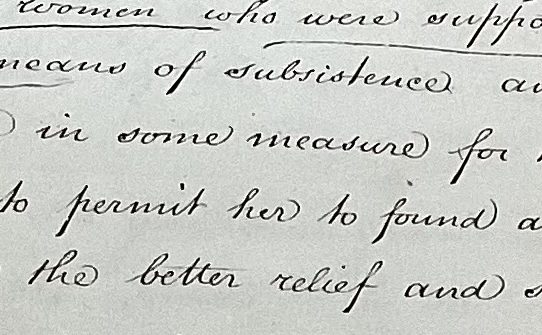 women who were suppo
means of subsistence a
in some measure for
to permit her to found a
the better relief and s